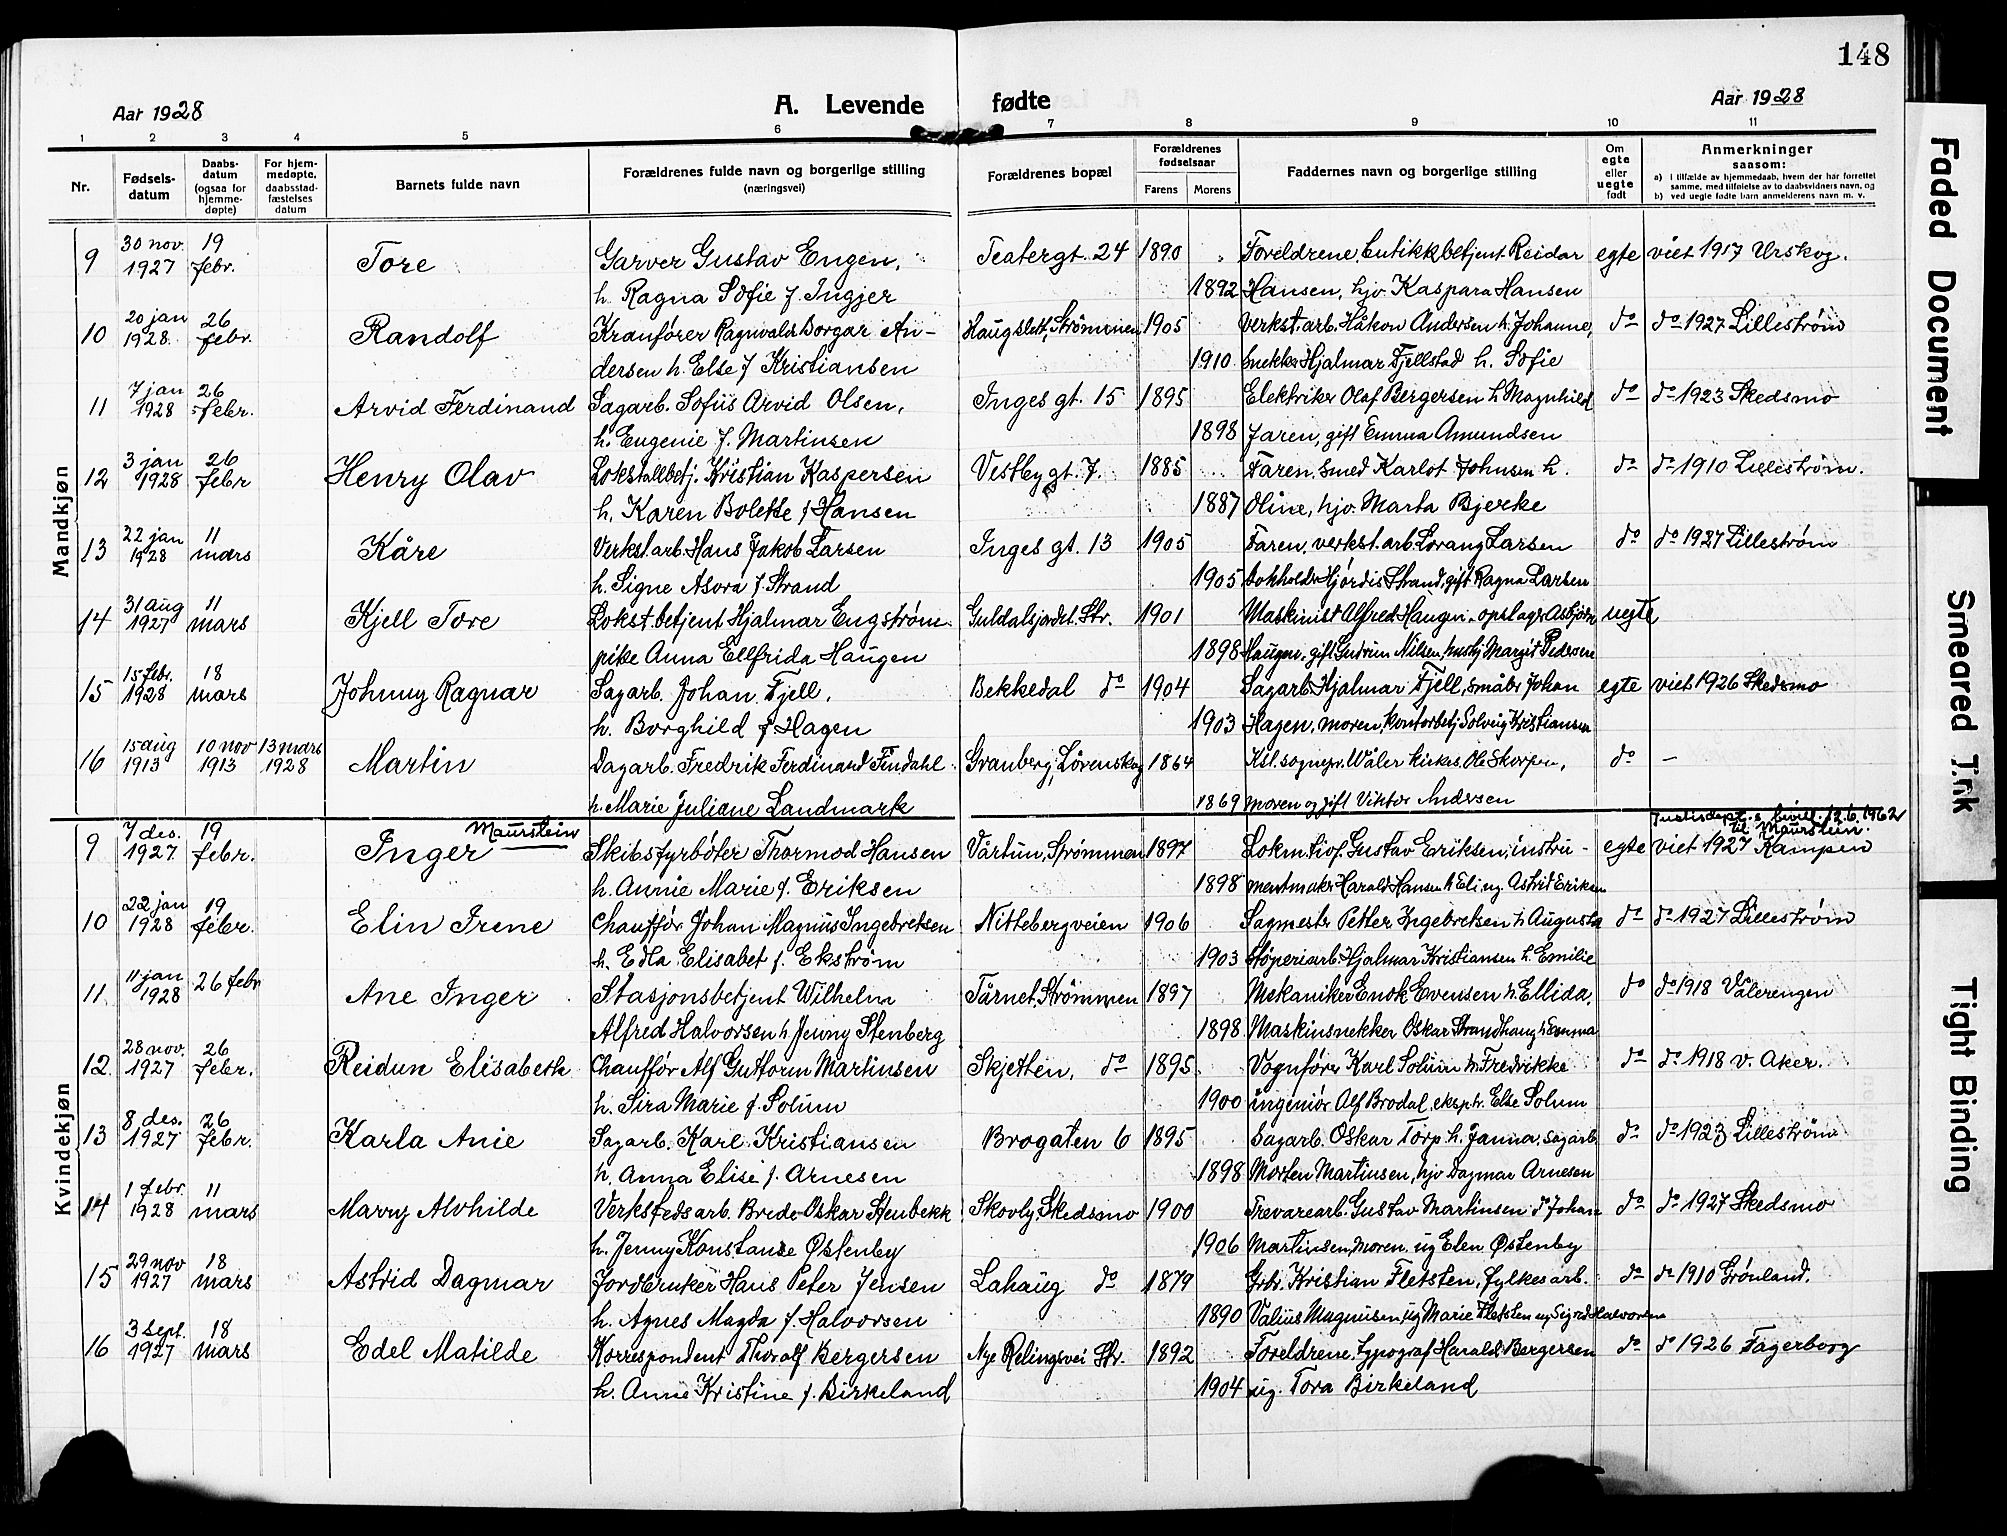 148
Aar 1928
A. Levende fødte
Aar 1928
1 2 3 4 5 6 7 8 9 10 11
Nr.
Fødsels-
datum
Daabs-
datum
(ogsaa for
hjemme-
døpte)
For hjem-
medøpte,
daabsstad-
fæstelses
datum
Barnets fulde navn
Forældrenes fulde navn og borgerlige stilling
(næringsvei)
Forældrenes bopæl
Forældrenes
fødselsaar
Farens Morens
Faddernes navn og borgerlige stilling
Om
egte
eller
uegte
født
Anmerkninger
saasom:
a) i tilfælde av hjemmedaab, hvem der har forrettet
samme, med tilføielse av to daabsvidners navn, og
b) ved uegte fødte barn anmelderens navn m. v.
Mandkjøn
30 nov. 19
9 1927 febr. Tore Garver Gustav Engen, Teatergt. 24 1890 Foreldrene, butikkbetjent Reidar egte viet 1917 Urskog.
h. Ragna Sofie f. Ingjer 1892 Hansen, hjv. Kaspara Hansen
20 jan 26
10 1928. febr. Randolf Kranfører Ragnvald Borgar An- Haugslett, Strømmen 1905 Verkst.arb. Håkon Andersen h. Johanne, do do 1927 Lillestrøm
dersen h. Else f Kristiansen 1910 snekker Hjalmar Fjellstad h. Sofie
7 jan 26
11 1928 febr. Arvid Ferdinand Sagarb. Sofus Arvid Olsen, Inges gt. 15 1895 Elektriker Olaf Bergersen h Magnhild do do 1923 Skedsmo
h. Eugenie f. Martinsen 1898 faren, gift Emma Amundsen
3 jan 26
12 1928 febr Henry Olav Lokstallbetj. Kristian Kaspersen Vestbygt. 7. 1885 Faren, smed Karlot Johnsen h. do do 1910 Lillestrøm.
h. Karen Bolette f Hansen 1887 Oline, hjv. Marta Bjerke
22 jan 11
13 1928 mars Kåre Verkst.arb. Hans Jakob Larsen Inges gt. 13 1905 Faren, verkst.arb. Lorang Larsen do do 1927 Lillestrøm
h. Signe Asora f Strand 1905 bokholder Hjørdis Strand, gift Ragna Larsen
31 aug 11
14 1927 mars Kjell Tore Lokst.betjent Hjalmar Engstrøm Guldalsjordet. Str. 1901 Maskinist Alfred Haugen, Asbjørn uegte
pike Anna Ellfrida Haugen 1898 Haugen, gift Gudrun Nilsen, Margit Pedersen
15 febr. 18
15 1928 mars Johnny Ragnar Sagarb. Johan Fjell, Bekkedal do 1904 Sagarb. Hjalmar Fjell, småbr Johan egte viet 1926 Skedsmo
h. Borghild f Hagen 1903 Hagen, moren, kontorbetj Solveig Kristiansen
15 aug 10 nov 13 mars
16 1913 1913 1928 Martin Dagarb. Fredrik Ferdinand Findahl Granberg, Lørenskog 1864 Ksl. sognepr. Wåler kirkes. Ole Skorpen, do —
h. Marie Juliane Landmark 1869 moren og gift Viktor Andersen
Kvindekjøn
Justisdept.s bevill. 12.6.1962
til Maurstein.
7 des. 19 Maurstein
9 1927 febr. Inger Skibsfyrbøter Thormod Hansen Vårtun, Strømmen 1897 Gustav Eriksen, instru- egte viet 1927 Kampen
h. Annie Marie f. Eriksen 1898 mentmaker Harald Hansen h Eli ug Astrid Eriksen
22 jan 19
10 1928 febr. Elin Irene Chauffør Johan Magnus Ingebretsen Nittebergveien 1906 Sagmester Petter Ingebretsen h Augusta do do 1927 Lillestrøm
h. Edla Elisabet f. Ekstrøm 1903 støperiarb Hjalmar Kristiansen h. Emilie
11 jan 26 febr
11. 1928 Ane Inger Stasjonsbetjent Wilhelm Tårnet, Strømmen 1897 Mekaniker Enok Evensen h. Ellida, do do 1918 Vålerengen
Alfred Halvorsen h Jenny Stenberg 1898 Maskinsnekker Oskar Strandhaug h Emma
28 nov. 26
12. 1927 febr. Reidun Elisabeth Chauffør Alf Guttorm Martinsen Skjetten, do 1895 Vognfører Karl Solum h Fredrikke do do 1918 v. Aker.
h. Sira Marie f. Solum 1900 ingeniør Alf Brodal, eksp.tr. Else Solum
8 des. 26
13 1927 febr. Karla Anie Sagarb. Karl Kristiansen Brogaten 6 1895 Sagarb. Oskar Torp h. Janna, sagarb do do 1923 Lillestrøm
h. Anna Elise f. Arnesen 1898 Morten Martinsen, hjv Dagmar Arnesen
1 febr. 11
14 1928 mars Marry Alvhilde Verksfedsarb. Brede Oskar Stenbekk Skovly, Skedsmo 1900 Trevarearb. Gustav Martinsen do Johan do do 1927 Skedsmo
h. Jenny Konstanse Østenby 1906 Martinsen, moren, ug Elen Østenby
29 nov 18
15 1927 mars Astrid Dagmar Jordbruker Hans Peter Jensen Lahaug do 1879 Grbr. Kristian Fletsten, fylkesarb. do do 1910 Grønland.
h. Agnes Magda f. Halvorsen 1890 Valius Magnusen, ug Marie Fletsten ug Sigrid Halvorsen
3 sept. 18
16 1927 mars Edel Matilde Korrespondent Thoralf Bergersen Nye Relingsvei Str. 1892 Foreldrene, typograf Harald Bergersen do do 1926 Fagerborg
h. Anne Kristine f. Birkeland 1904 ug. Tora Birkeland
Faded Document
Smeared Ink
Tight Binding